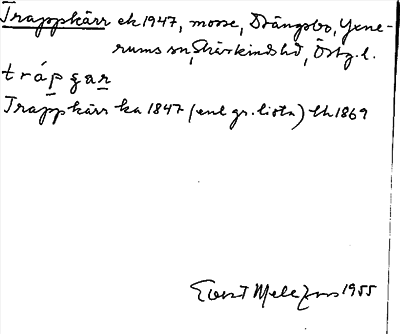 Trappkärr ek 1947, mosse, Drängsbo, Yxne-
rums sn, Skärkinds hd, Östg. l.
trápçar
Trappkärr ka 1847 (enl gr. lista) lk 1869
1955